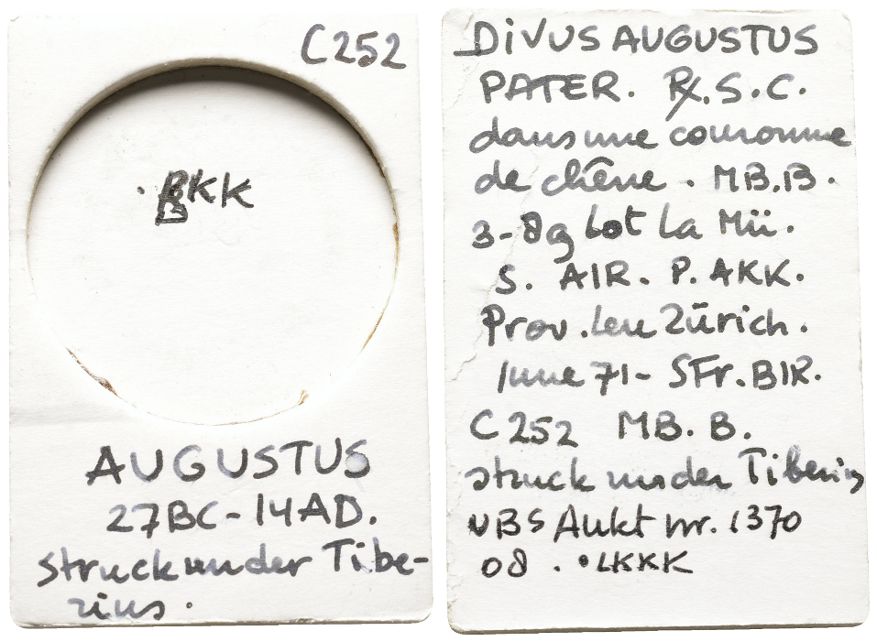 C252
AUGUSTUS
27BC-14AD.
struck under Tibe-
rius.
DiVUS AUGUSTUS
PATER. R/.S.C.
dans une couronne
de chêne. MB.B.
3-8g lot La Mü.
S. AIR. P. AKK.
Prov. Leu Zürich.
June 71- SFr. BIR.
C 252 MB. B.
struck under Tiberius
UBS Aukt nr. 1370
08 . •LKKK